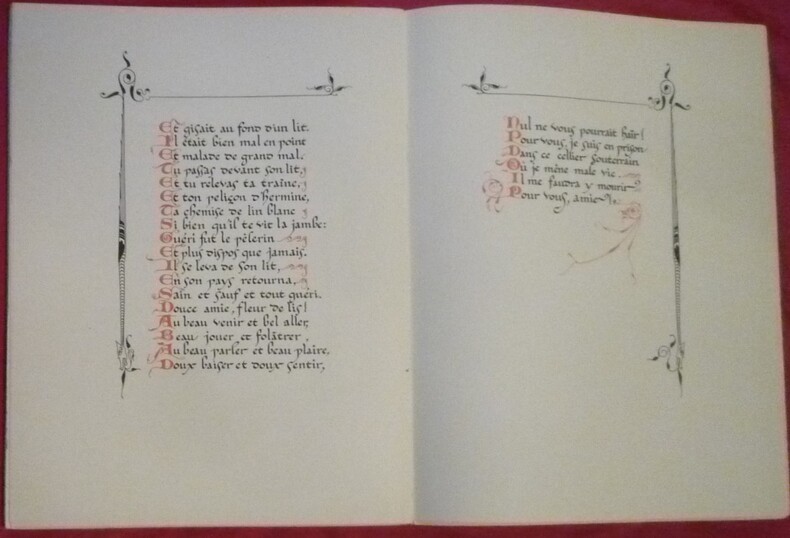 Et gisait au fond d'un lit.
Il était bien mal en point
Et malade de grand mal.
Tu passas devant son lit,
Et tu relevas ta traîne,
Et ton peliçon d'hermine,
Ta chemise de lin blanc
Si bien qu'il te vit la jambe:
Guéri fut le pèlerin
Et plus dispos que jamais.
Il se leva de son lit,
En son pays retourna,
Sain et sauf et tout guéri.
Douce amie, fleur de lis!
Au beau venir et bel aller,
Beau jouer et folâtrer,
Au beau parler et beau plaire,
Doux baiser et doux sentir,
Nul ne vous pourrait haïr!
Pour vous, je suis en prison
Dans ce cellier souterrain
Où je mène male vie.
Il me faudra y mourir
Pour vous, amie!